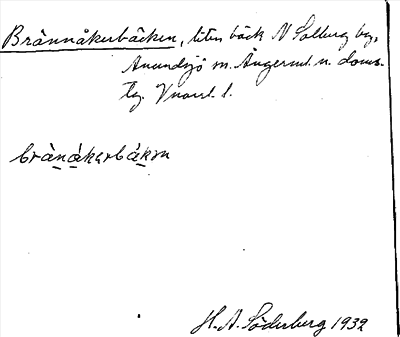 Brännåkerbäcken, liten bäck N Solberg by,
Anundsjö sn. Ångerml. n. doms.
brànákerbákɐn
H. A. Söderberg 1932